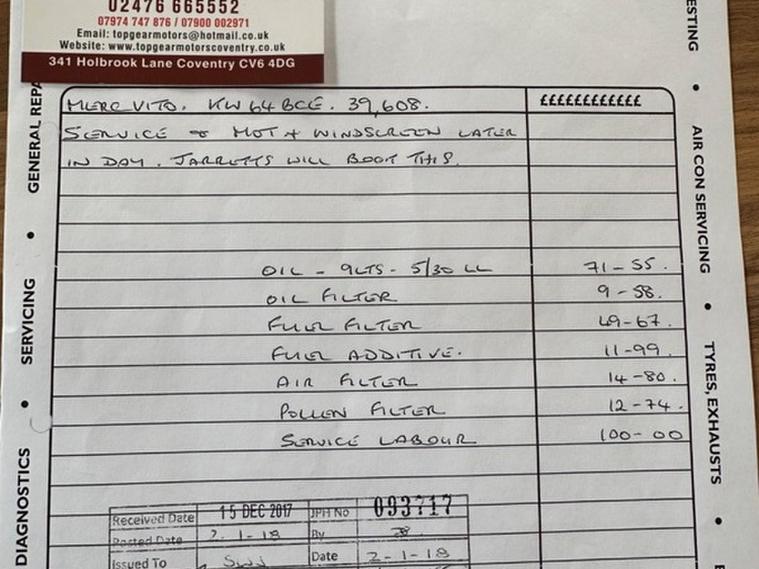 02476 665552
07974 747 876 / 07900 002971
Email: topgearmotors@hotmail.co.uk
Website: www.topgearmotorscoventry.co.uk
341 Holbrook Lane Coventry CV6 4DG
MERC VITO. KW64 BCE. 39,608. ££££££££££££
SERVICE & MOT + WINDSCREEN LATER
IN DAY. JARRETTS WILL BOOK THIS.
OIL - 9LTS - 5/30 LL 71-55.
OIL FILTER 9-58.
FUEL FILTER 49-67.
FUEL ADDITIVE. 11-99.
AIR FILTER 14-80.
POLLEN FILTER 12-74.
SERVICE LABOUR 100-00
Received Date 15 DEC 2017 JPH No 093717
Posted Date 2-1-18 By
Issued To SWJ Date 2-1-18
GENERAL REPA
• SERVICING
• DIAGNOSTICS
ESTING
• AIR CON SERVICING
• TYRES, EXHAUSTS
•